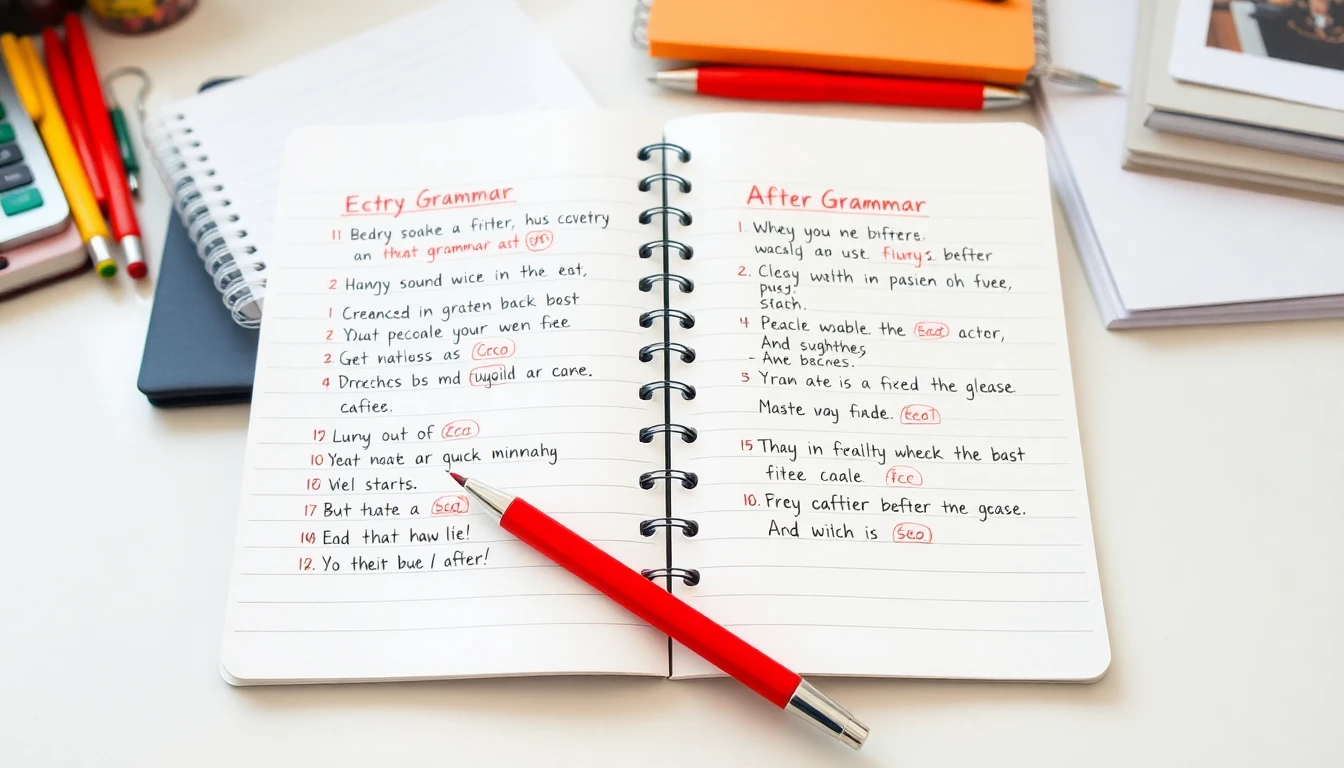 Ectry Grammar
11 Bedry soake a firter, hus ccvetry
an thut grammar ast
2 Hangy sound wice in the eat,
1 Creanced in graten back best
2 Yout pecoale your wen fiee
2. Get natloss as Crco
4 Drrechcs bs md ar cane.
cafiee.
17 Luny out of Eca
10 Yeat noate ar quick minnahy
10 Wel starts.
17 But tiate a Scd
16 End that haw lie!
12. Yo theit bue / after!
After Grammar
1. Whey you ne bifters.
wacslg an use flurys befter
2. Clesy walth in pasien oh fuee,
pusy.
stach.
4 Peacle wsable. the actor,
And sughthes
- Ane bacnes.
3 Yran ate is a fixed the glease
Maste vay finde.
15 Thay in feallty wheck the bast
fitee caale. Fce
10. Frey caftier befter the gcase.
And wilch is Seo.